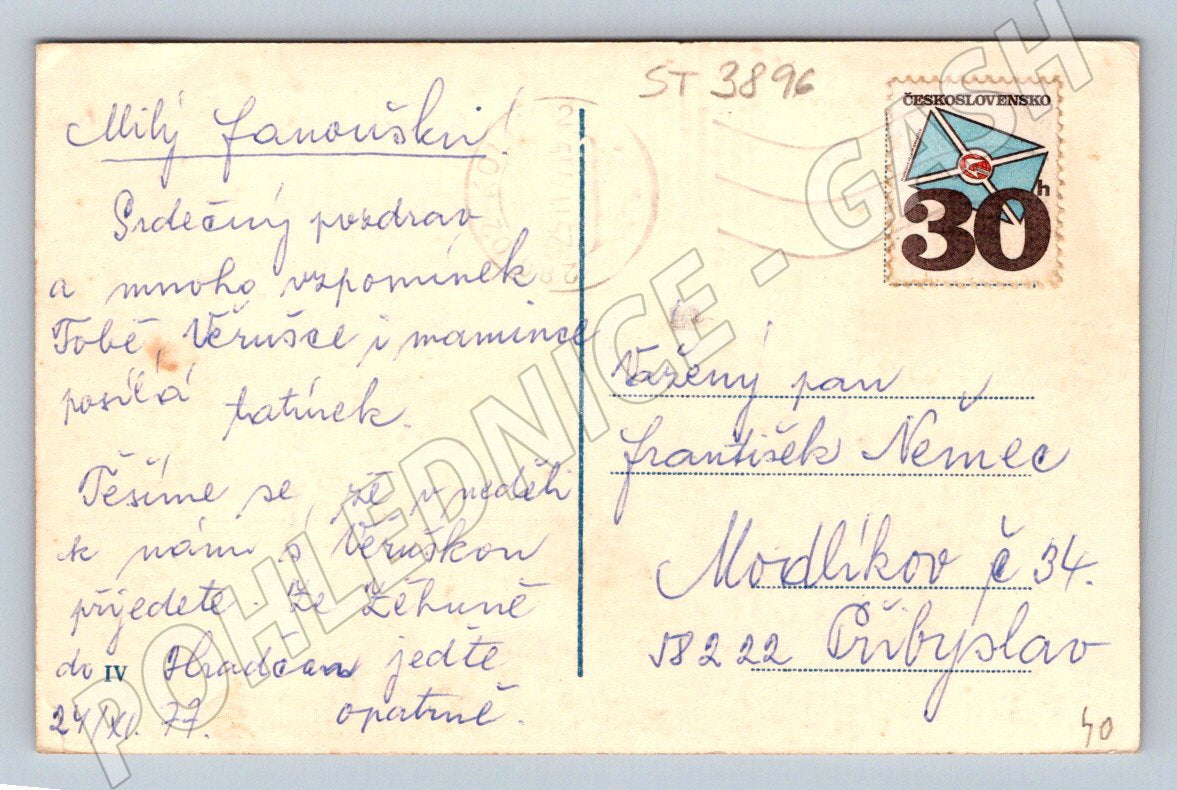 ST 3896
ČESKOSLOVENSKO
30h
Milý Fanoušku!
Srdečný pozdrav
a mnoho vzpomínek
Tobě, Věrušce i mamince
posílá tatínek.
Těšíme se, že v neděli
k nám s Věruškou
přijedete. Ze Žehuně
do Hradčan jeďte
IV
24/XI. 77. opatrně.
Vážený pan
František Nemec
Modlíkov č 34.
58222 Přibyslav
40
POHLEDNICE - GASH